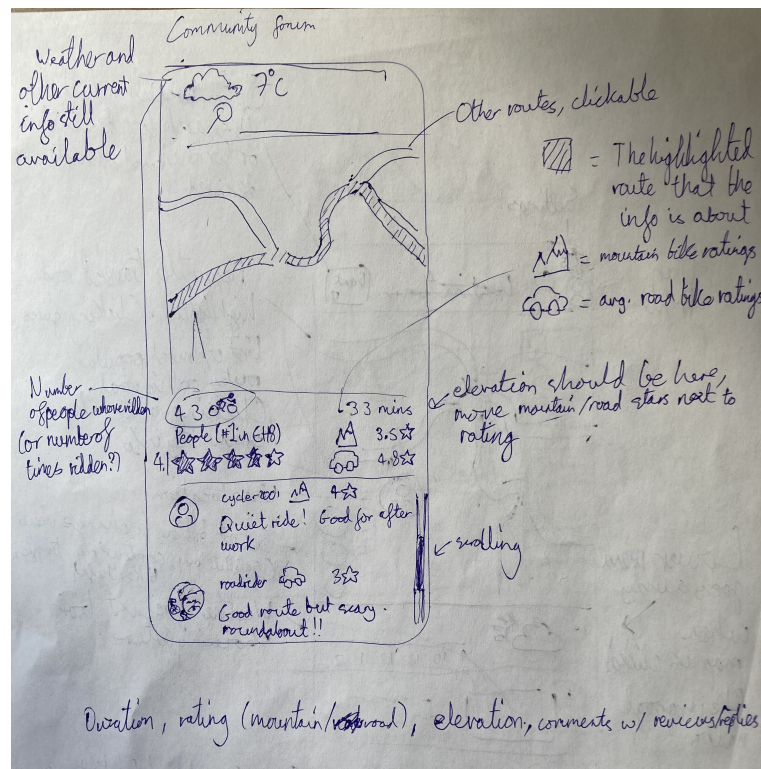 Community forum
Weather and
other current
info still
available
7°C
Other routes, clickable
= The highlighted
route that the
info is about
= mountain bike ratings
= avg. road bike ratings
Number
of people whove ridden
(or number of
times ridden?)
43
33 mins
People (#1 in EH8)
3.5☆
4.1 ☆☆☆☆☆
4.8☆
elevation should be here,
move mountain/road stars next to
rating
4☆
Quiet ride! Good for after
work
scrolling
roadrider 3☆
Good route but scary
roundabout!!
Duration, rating (mountain/road), elevation, comments w/ reviews/replies